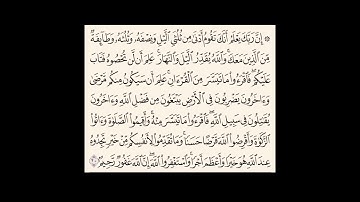 ۞ إِنَّ رَبَّكَ يَعْلَمُ أَنَّكَ تَقُومُ أَدْنَىٰ مِن ثُلُثَىِ ٱلَّيْلِ وَنِصْفَهُۥ وَثُلُثَهُۥ وَطَآئِفَةٌ
مِّنَ ٱلَّذِينَ مَعَكَ ۚ وَٱللَّهُ يُقَدِّرُ ٱلَّيْلَ وَٱلنَّهَارَ ۚ عَلِمَ أَن لَّن تُحْصُوهُ فَتَابَ
عَلَيْكُمْ ۖ فَٱقْرَءُوا۟ مَا تَيَسَّرَ مِنَ ٱلْقُرْءَانِ ۚ عَلِمَ أَن سَيَكُونُ مِنكُم مَّرْضَىٰ ۙ
وَءَاخَرُونَ يَضْرِبُونَ فِى ٱلْأَرْضِ يَبْتَغُونَ مِن فَضْلِ ٱللَّهِ ۙ وَءَاخَرُونَ
يُقَٰتِلُونَ فِى سَبِيلِ ٱللَّهِ ۖ فَٱقْرَءُوا۟ مَا تَيَسَّرَ مِنْهُ ۚ وَأَقِيمُوا۟ ٱلصَّلَوٰةَ وَءَاتُوا۟
ٱلزَّكَوٰةَ وَأَقْرِضُوا۟ ٱللَّهَ قَرْضًا حَسَنًا ۚ وَمَا تُقَدِّمُوا۟ لِأَنفُسِكُم مِّنْ خَيْرٍ تَجِدُوهُ
عِندَ ٱللَّهِ هُوَ خَيْرًا وَأَعْظَمَ أَجْرًا ۚ وَٱسْتَغْفِرُوا۟ ٱللَّهَ ۖ إِنَّ ٱللَّهَ غَفُورٌ رَّحِيمٌۢ ۝٢٠